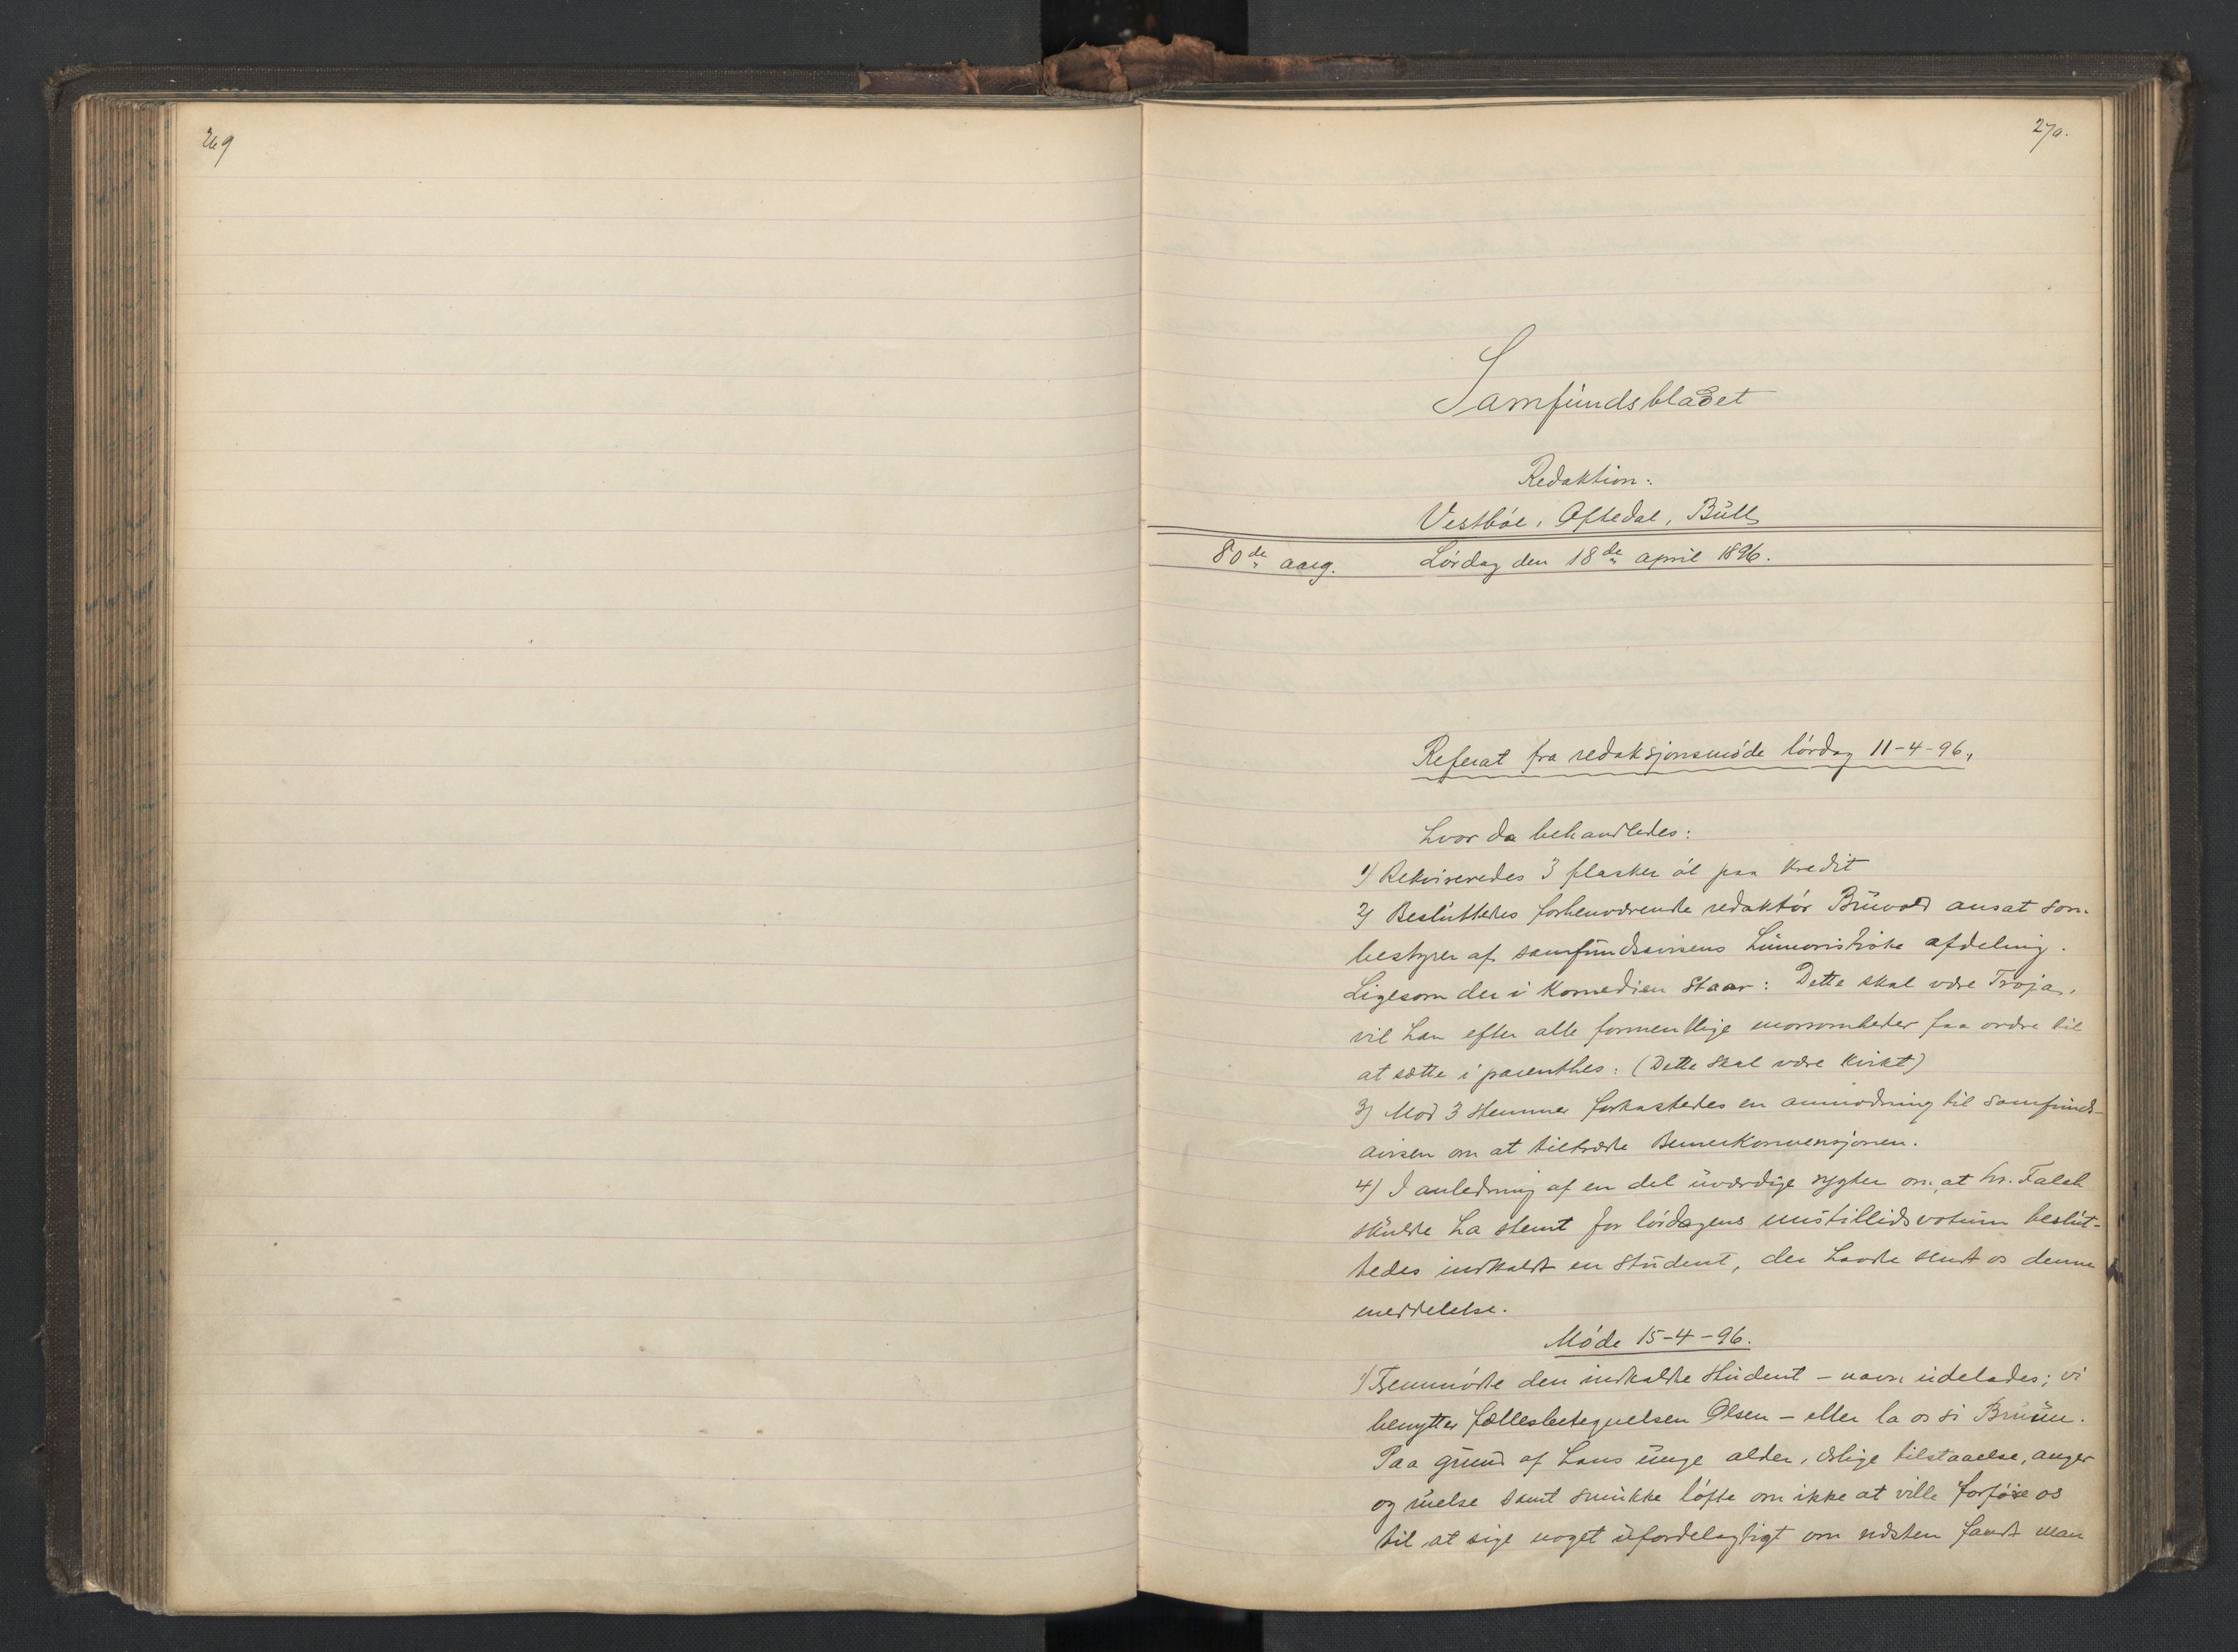 269
270.
Samfundsbladet
Redaktion:
Vestbøe, Oftedal, Bull
80de aarg. Lørdag den 18de april 1896.
Referat fra redaksjonsmøde lørdag 11-4-96,
hvor da behandledes:
1) Rekvireredes 3 flasker øl paa kredit
2) Besluttedes forhenværende redaktør Buvold ansat som
bestyrer af samfundsavisens humoristiske afdeling.
Ligesom der i Komedien staar: Dette skal være Troja,
vil han efter alle formentlige morsomheder faa ordre til
at sætte i parenthes: (Dette skal være kvikt)
3) Mod 3 stemmer forkastedes en anmodning til samfunds-
avisen om at tiltræde Bernerkonvensjonen.
4) I anledning af en del uværdige rygter om, at hr. Falch
skulde ha stemt for lørdagens mistillidsvotum beslut-
tedes indkaldt en student, der havde sendt os denne
meddelelse.
Møde 15-4-96.
1) Fremmødte den indkaldte student – navn udelades; vi
benytter fællesbetegnelsen Olsen – eller la os si Bruun.
Paa grund af hans unge alder, ærlige tilstaaelse, anger
og ruelse samt smukke løfte om ikke at ville forføre os
til at sige noget ufordelagtigt om næsten fandt man